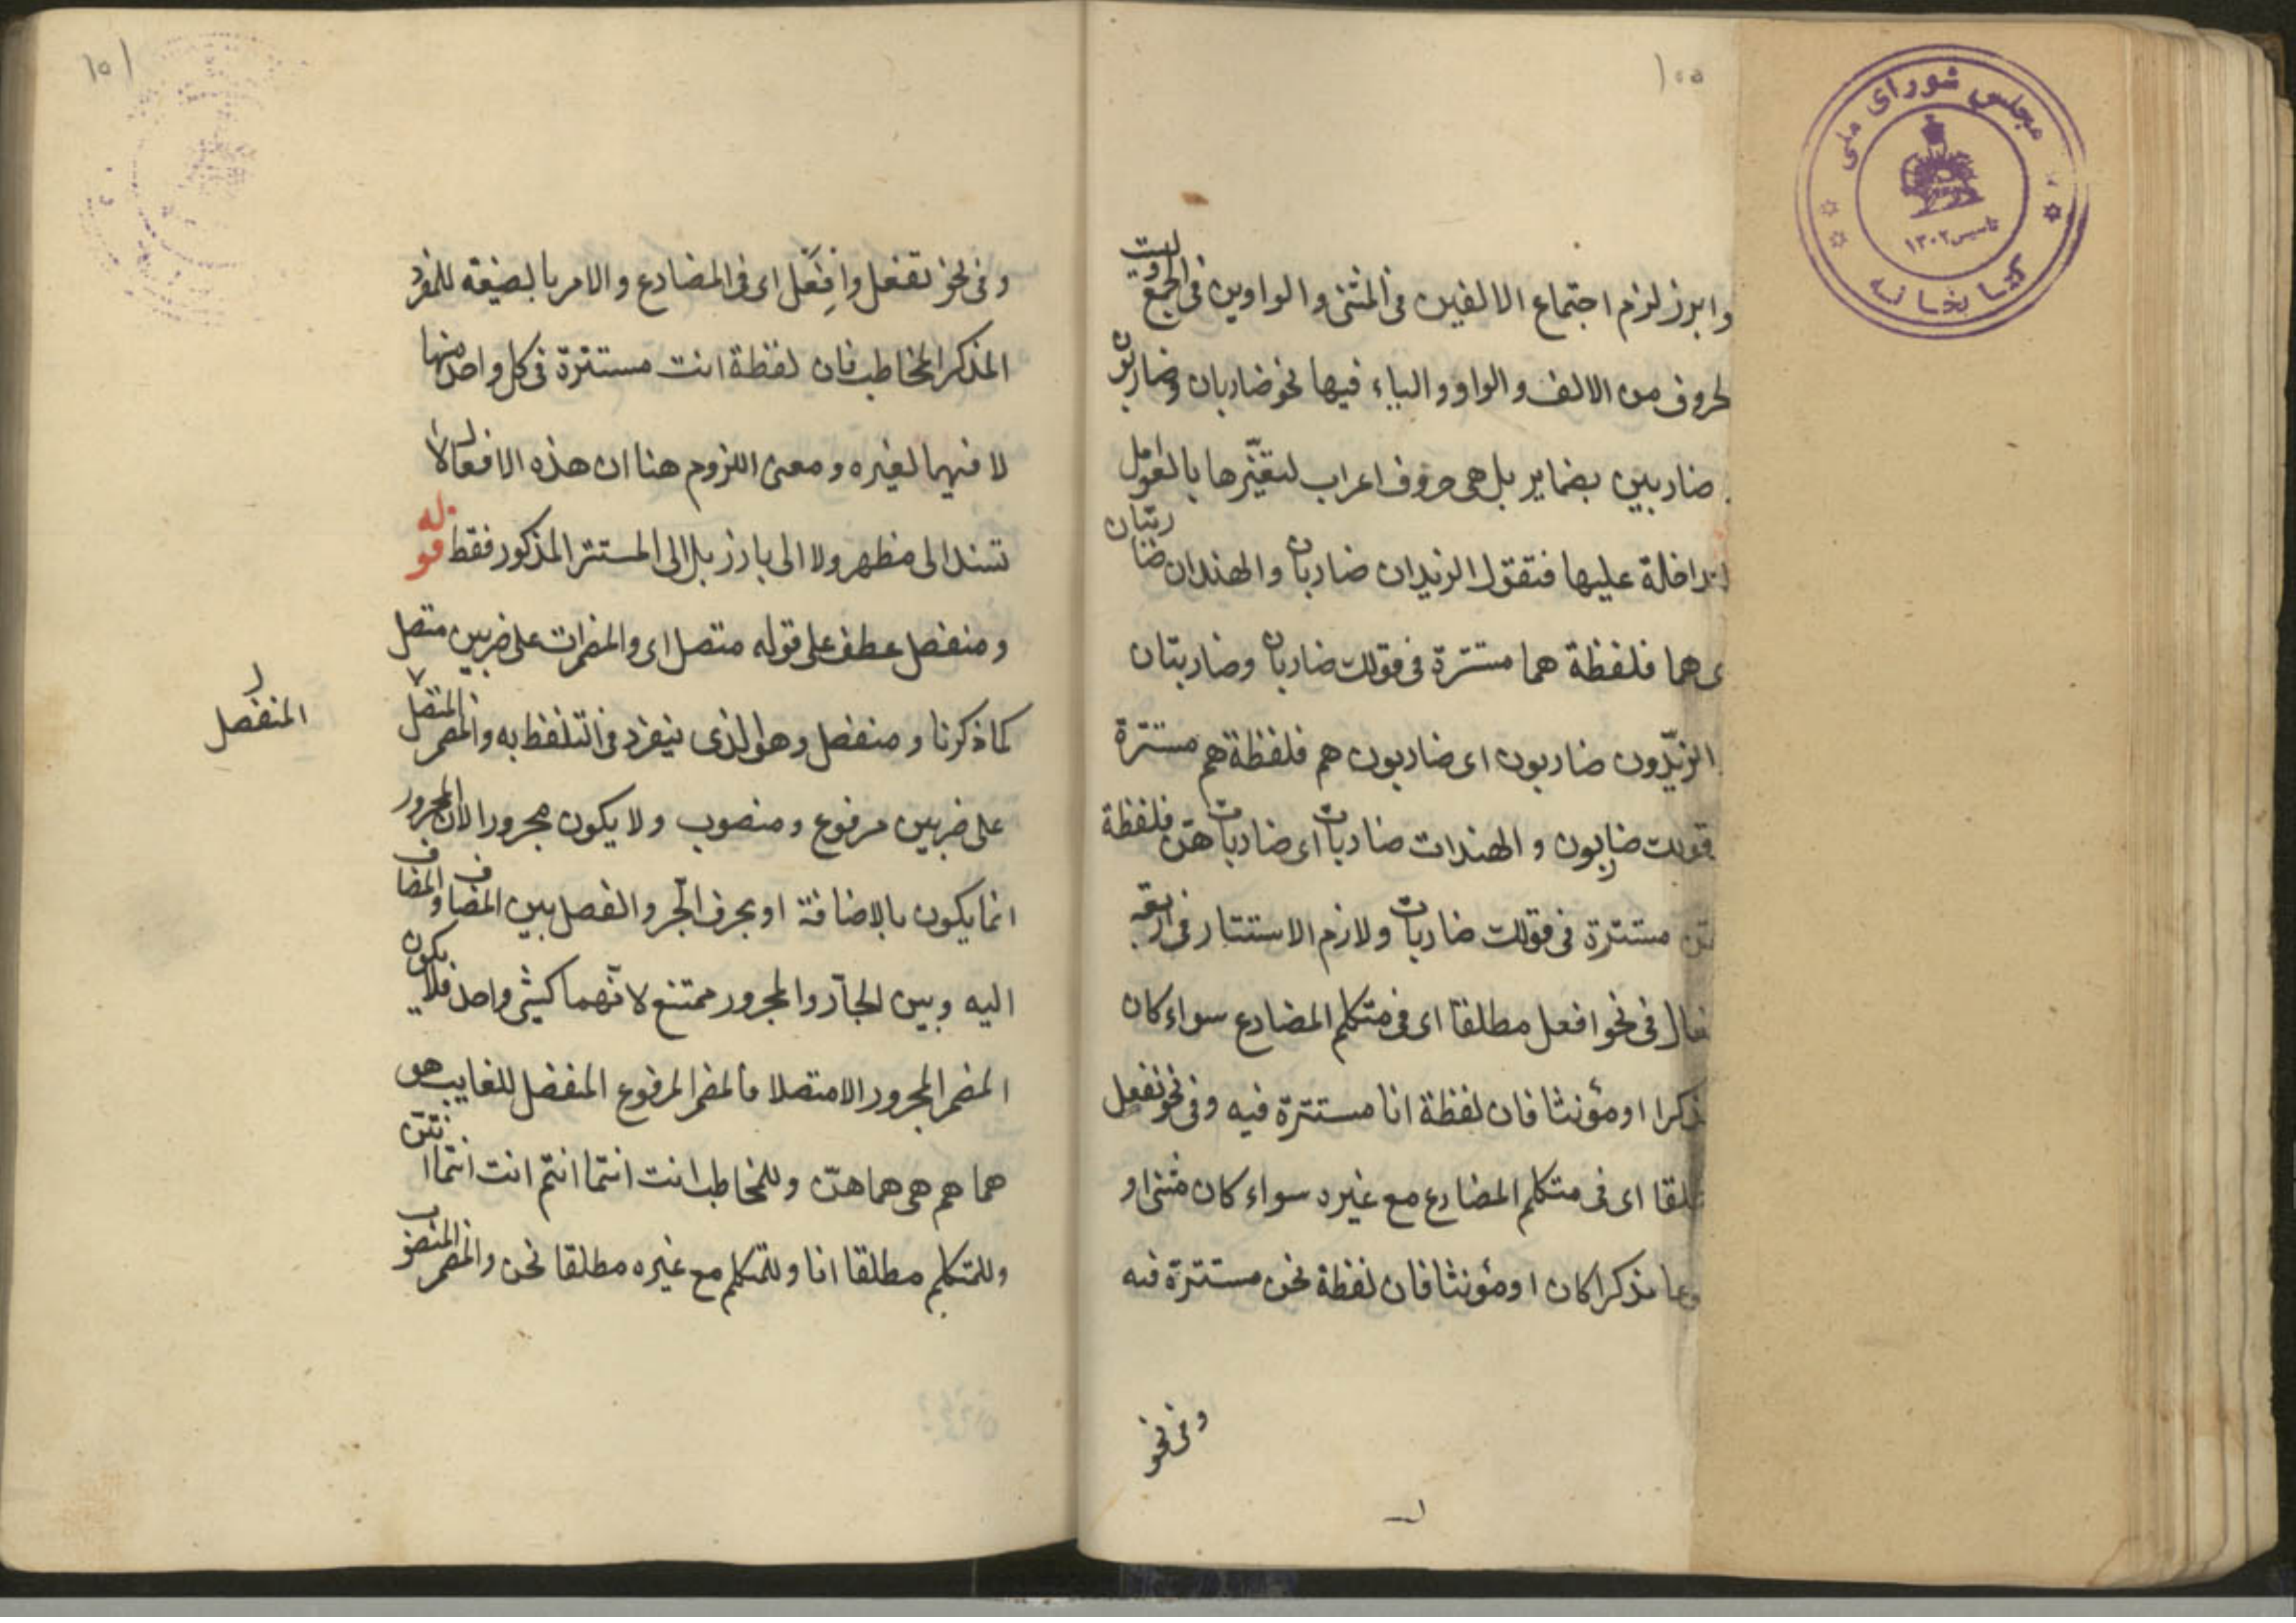 ١٥٥
مجلس شورای ملی
تاسیس ١٣٠٢
کتابخانه
وابرز لزم اجتماع الالفين فى المثنى والواوين فى الجمع وليست
لحروف من الالف والواو والياء فيها نحو ضاربان وضاربون
ضاربين بضماير بل هى حروف اعراب لتغيّرها بالعوامل
لداخلة عليها فتقول الزيدان ضاربان والهندان ضاربتان
ى هما فلفظة هما مستترة فى قولك ضاربان وضاربتان
الزيدون ضاربون اى ضاربون هم فلفظة هم مستترة
قولك ضاربون والهندات ضاربات اى ضاربات هنّ فلفظة
مستترة فى قولك ضاربات ولازم الاستتار فى اربعة
فعال فى نحو افعل مطلقا اى فى متكلم المضارع سواء كان
ذكرا او مؤنثا فان لفظة انا مستترة فيه وفى نحو نفعل
طلقا اى فى متكلم المضارع مع غيره سواء كان مثنى او
مذكرا كان او مؤنثا فان لفظة نحن مستترة فيه
وفى نحو
١٥١
وفى نحو تفعل وافعل اى فى المضارع والامر بالصيغة للمفرد
المذكر المخاطب فان لفظة انت مستترة فى كل واحد منها
لا فيهما لغيره ومعنى اللزوم هنا ان هذه الافعال لا
تسند الى مظهر ولا الى بارز بل الى المستتر المذكور فقط قوله
ومنفصل عطف على قوله متصل اى والمضمرات على ضربين متصل
كما ذكرنا ومنفصل وهو الذى ينفرد فى التلفظ به والمضمر المتصل
المنفصل
على ضربين مرفوع ومنصوب ولا يكون مجرورا لان المجرور
انما يكون بالاضافة او بحرف الجّر والفصل بين المضاف والمضاف
اليه وبين الجارّ والمجرور ممتنع لانّهما كشئ واحد فلا يكون
المضمر المجرور الا متصلا فالمضمر المرفوع المنفصل للغايب هو
هما هم هى هما هنّ وللمخاطب انت انتما انتم انت انتما انتنّ
وللمتكلم مطلقا انا وللمتكلم مع غيره مطلقا نحن والمضمر المنصوب